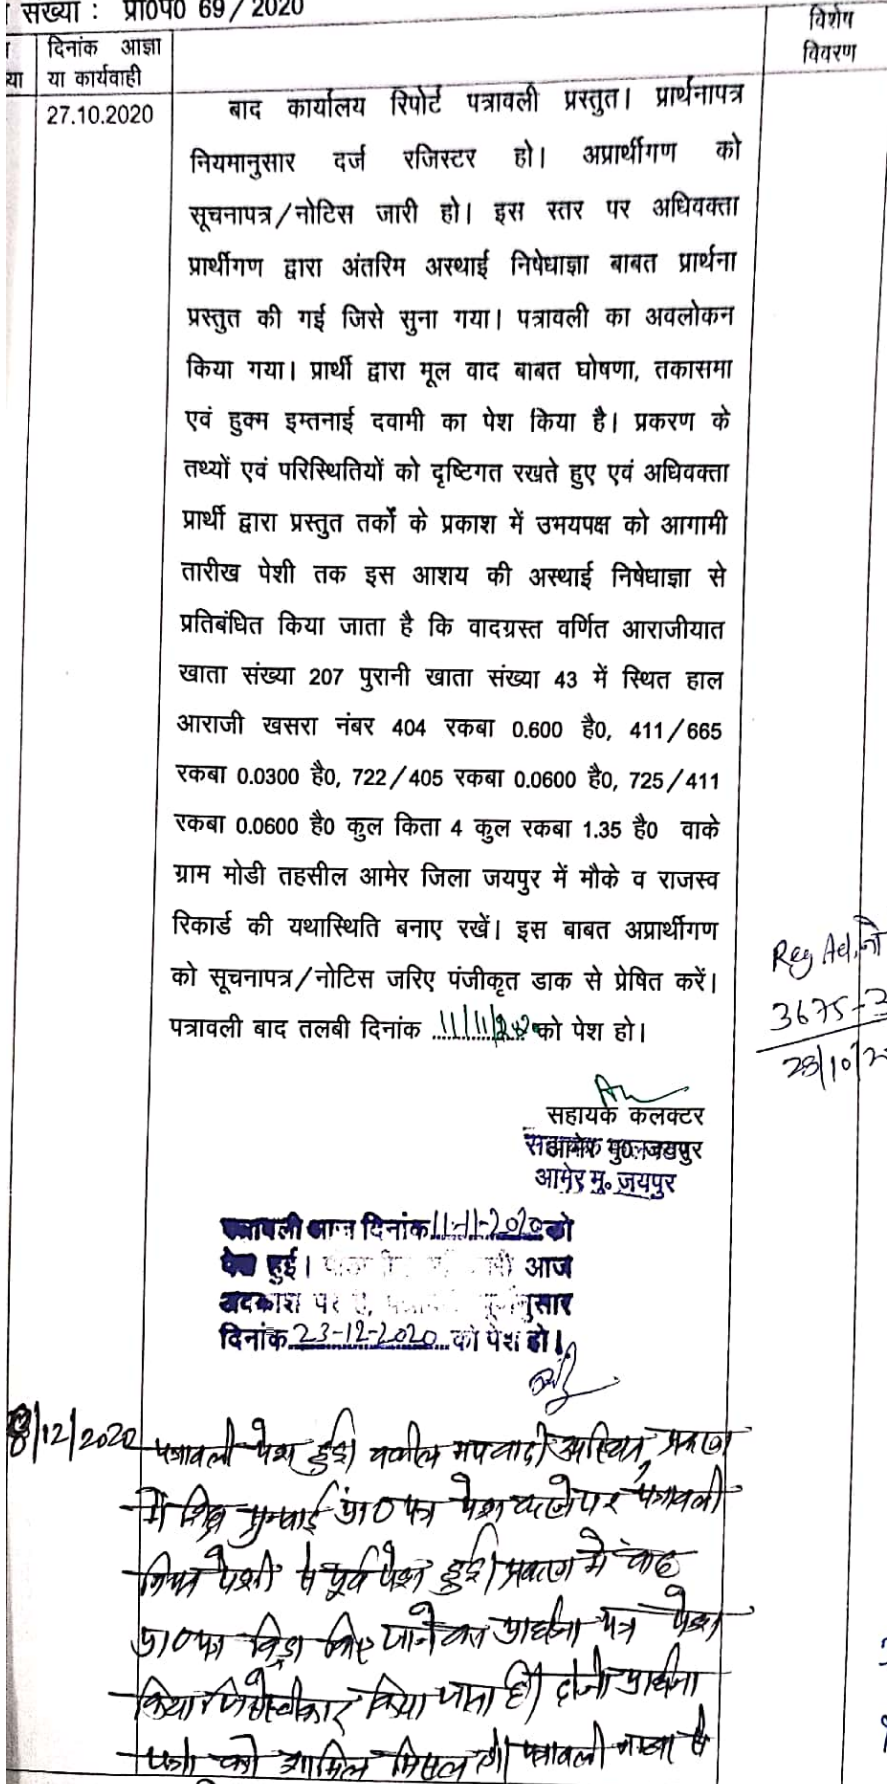 संख्या : प्रा0प0 69/2020
दिनांक आज्ञा
या कार्यवाही
विशेष
विवरण
27.10.2020
बाद कार्यालय रिपोर्ट पत्रावली प्रस्तुत। प्रार्थनापत्र
नियमानुसार दर्ज रजिस्टर हो। अप्रार्थीगण को
सूचनापत्र/नोटिस जारी हो। इस स्तर पर अधिवक्ता
प्रार्थीगण द्वारा अंतरिम अस्थाई निषेधाज्ञा बाबत प्रार्थना
प्रस्तुत की गई जिसे सुना गया। पत्रावली का अवलोकन
किया गया। प्रार्थी द्वारा मूल वाद बाबत घोषणा, तकासमा
एवं हुक्म इम्तनाई दवामी का पेश किया है। प्रकरण के
तथ्यों एवं परिस्थितियों को दृष्टिगत रखते हुए एवं अधिवक्ता
प्रार्थी द्वारा प्रस्तुत तर्कों के प्रकाश में उभयपक्ष को आगामी
तारीख पेशी तक इस आशय की अस्थाई निषेधाज्ञा से
प्रतिबंधित किया जाता है कि वादग्रस्त वर्णित आराजीयात
खाता संख्या 207 पुरानी खाता संख्या 43 में स्थित हाल
आराजी खसरा नंबर 404 रकबा 0.600 है0, 411/665
रकबा 0.0300 है0, 722/405 रकबा 0.0600 है0, 725/411
रकबा 0.0600 है0 कुल किता 4 कुल रकबा 1.35 है0 वाके
ग्राम मोडी तहसील आमेर जिला जयपुर में मौके व राजस्व
रिकार्ड की यथास्थिति बनाए रखें। इस बाबत अप्रार्थीगण
को सूचनापत्र/नोटिस जरिए पंजीकृत डाक से प्रेषित करें।
पत्रावली बाद तलबी दिनांक 11/11/2020 को पेश हो।
Reg Ad. नो
3675-
28/10/2
सहायक कलक्टर
आमेर मु0 जयपुर
आमेर मु. जयपुर
पत्रावली आज दिनांक 11-11-2020 को
पेश हुई। आज
अवकाश पर
दिनांक 23-12-2020 को पेश हो।
8/12/2020 पत्रावली पेश हुई। वकील उपस्थित, प्रकरण
में शीघ्र सुनवाई प्रा0 पत्र पेश करने पर पत्रावली
नियत पेशी से पूर्व पेश हुई। प्रकरण में वाद
प्रा0 पत्र विड्रा किए जाने का प्रार्थना पत्र पेश
किया जिसे स्वीकार किया जाता है। दोनों प्रार्थना
पत्रों को शामिल मिसल हो। पत्रावली नम्बर से